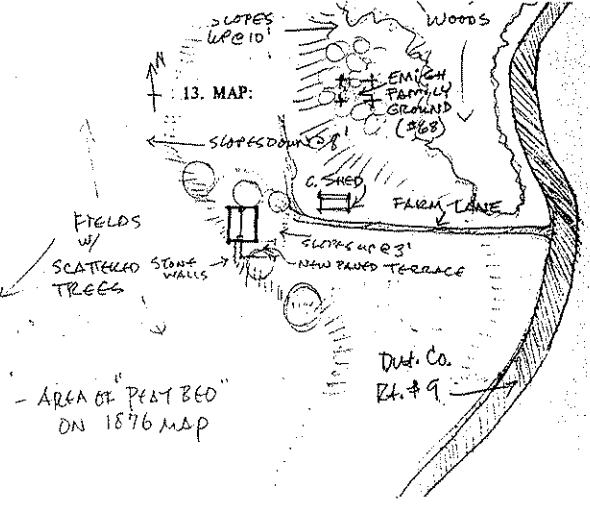 SLOPES
UP @ 10'
WOODS
N
13. MAP:
EMIGH
FAMILY
GROUND
(#68)
SLOPES DOWN @ 8'
C. SHED
FARM LANE
FIELDS
W/
SCATTERED
TREES
STONE
WALLS
SLOPES UP @ 3'
NEW PAVED TERRACE
Dut. Co.
Rt. # 9
- AREA OF "PEAT BED"
ON 1876 MAP